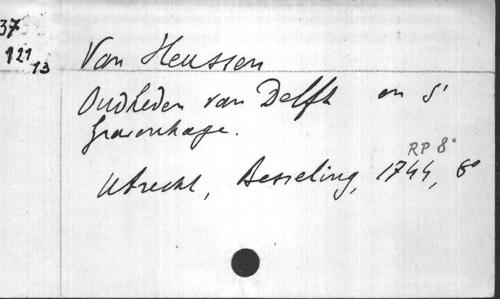 37
121
13
Van Heussen
Oudheden van Delft en s'
Gravenhage.
RP 8°
Utrecht, Besseling, 1744, 8°